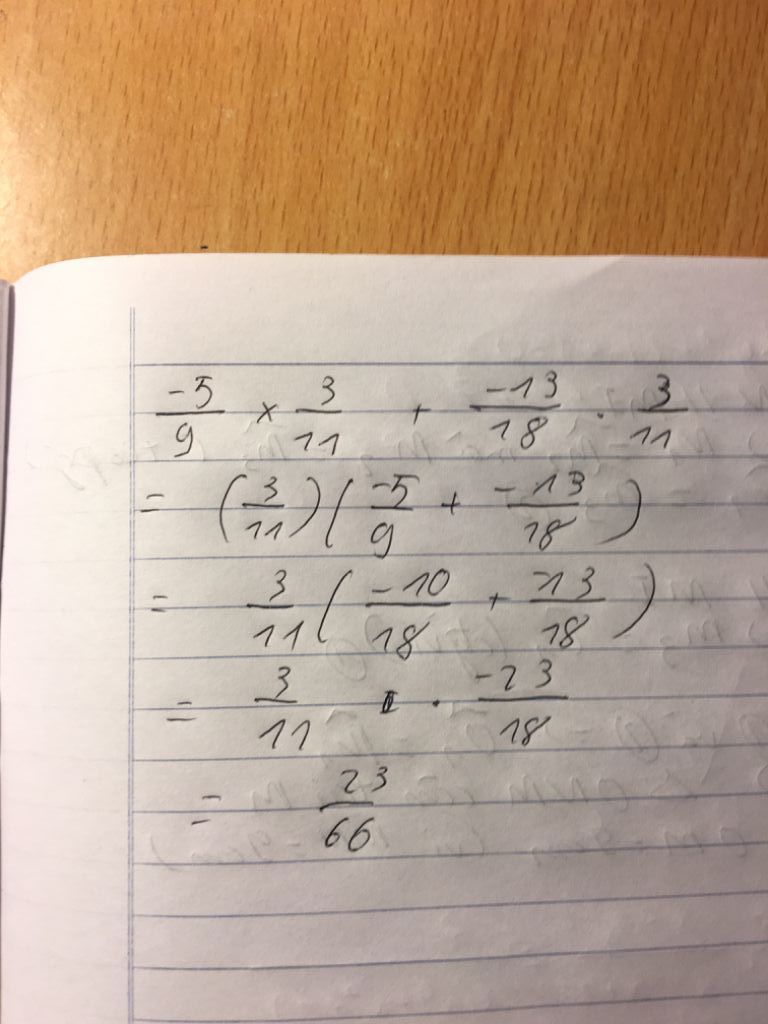 -5/9 × 3/11 + -13/18 · 3/11
= (3/11)(-5/9 + -13/18)
= 3/11(-10/18 + -13/18)
= 3/11 · -23/18
= 23/66